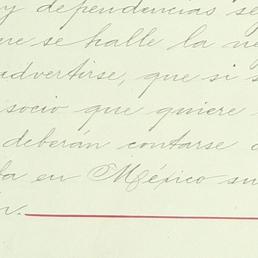 y dependencias se
se halle la
advertirse, que si s
socio que quiere
deberán contarse
en México su